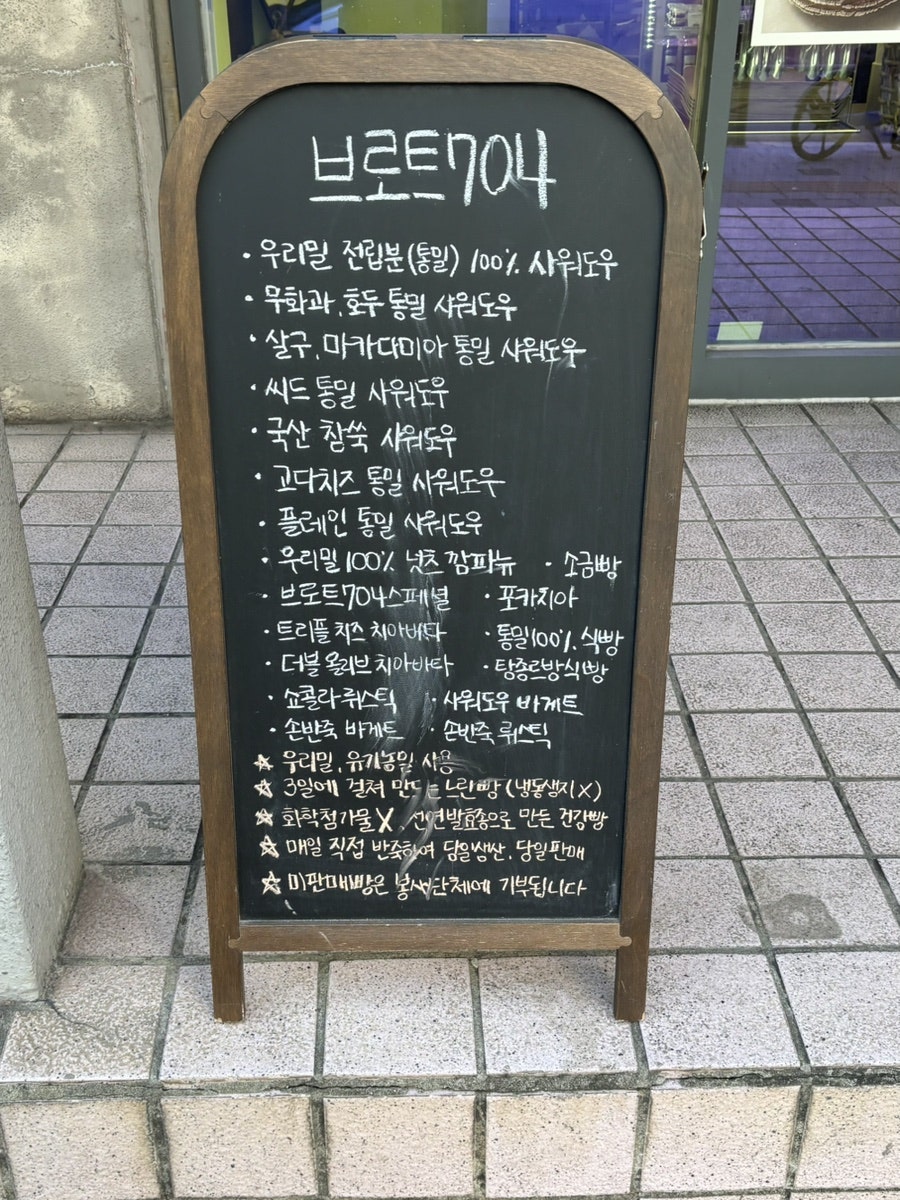 브로트704
· 우리밀 전립분(통밀) 100% 사워도우
· 무화과, 호두 통밀 사워도우
· 살구, 마카다미아 통밀 사워도우
· 씨드 통밀 사워도우
· 국산 참쑥 사워도우
· 고다치즈 통밀 사워도우
· 플레인 통밀 사워도우
· 우리밀 100% 넛츠 깜파뉴 · 소금빵
· 브로트704스페셜 · 포카치아
· 트리플 치즈 치아바타 · 통밀100% 식빵
· 더블 올리브 치아바타 · 탕종르방식빵
· 쇼콜라 뤼스틱 · 사워도우 바게트
· 손반죽 바게트 · 손반죽 뤼스틱
☆ 우리밀, 유기농밀 사용
☆ 3일에 걸쳐 만드는 느린빵 (냉동생지X)
☆ 화학첨가물X, 천연발효종으로 만든 건강빵
☆ 매일 직접 반죽하여 당일생산, 당일판매
☆ 미판매빵은 봉사단체에 기부됩니다